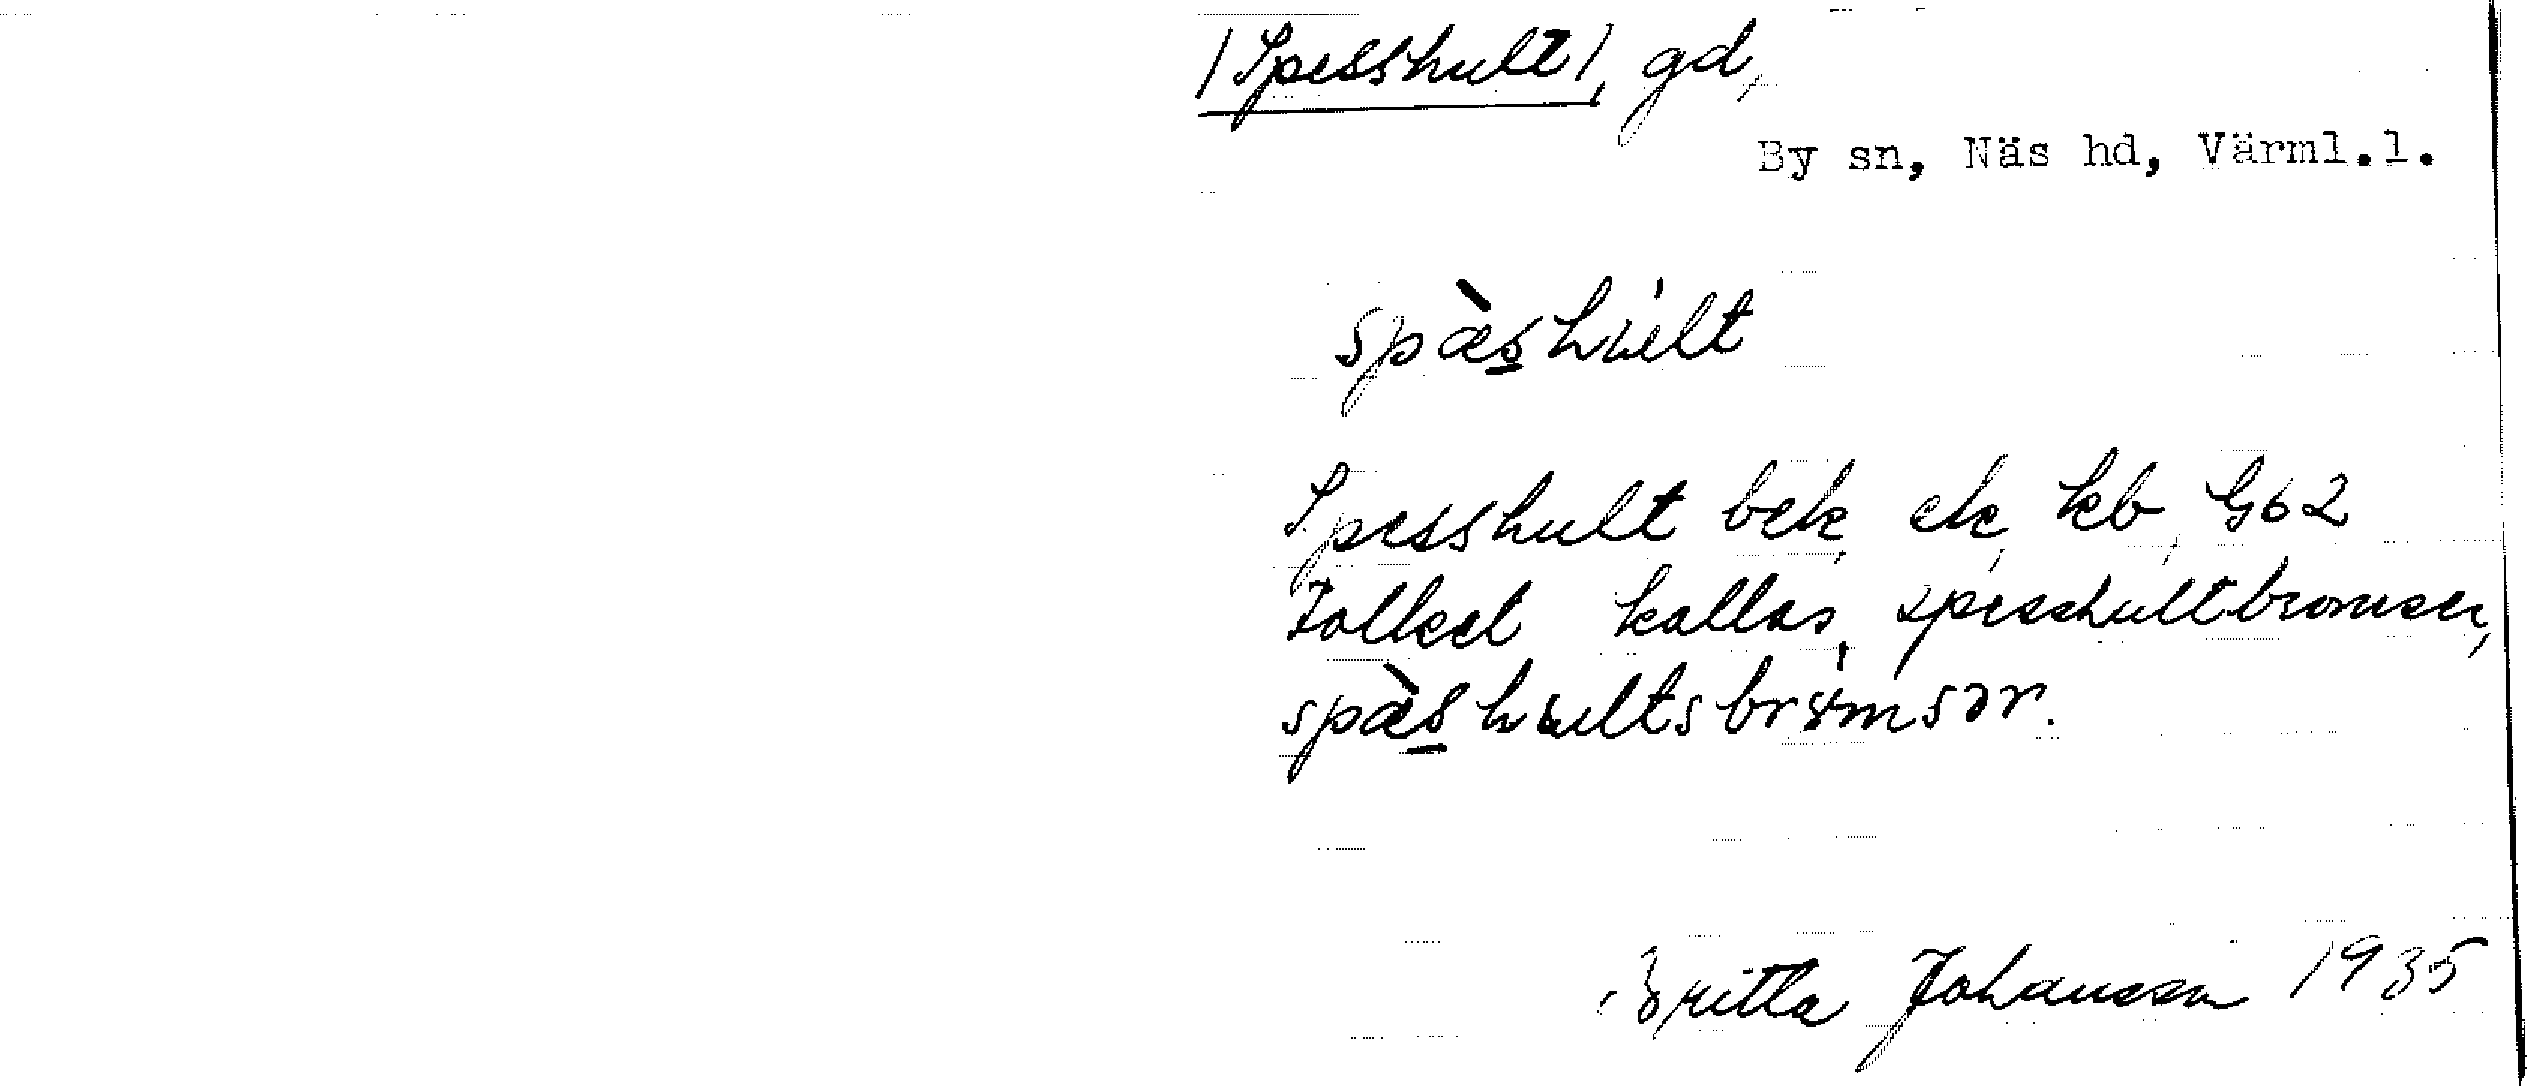 /Spesshult/, gd,
By sn, Näs hd, Värml.l.
spæ̀shult
Spesshult bek, ek, kb, G62
Folket kallas, spesshultbromser,
spæ̀shultsbrɤmsər.
Britta Johansson 1935